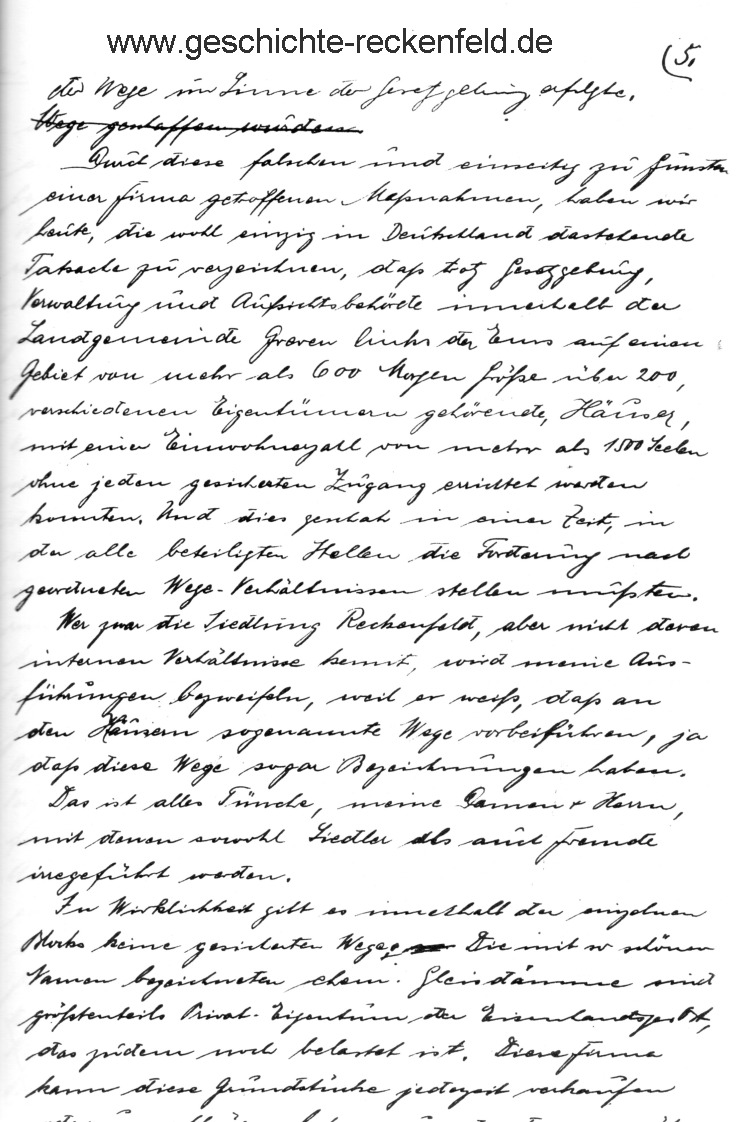 www.geschichte-reckenfeld.de
(5.
der Wege im Sinne der Gesetzgebung erfolgte.
Wege geschaffen würden
Durch diese falschen und einseitig zu Gunsten
einer Firma getroffenen Maßnahmen, haben wir
heute, die wohl einzig in Deutschland dastehende
Tatsache zu verzeichnen, daß trotz Gesetzgebung,
Verwaltung und Aufsichtsbehörde innerhalb der
Landgemeinde Greven links der Ems auf einen
Gebiet von mehr als 600 Morgen Größe über 200,
verschiedenen Eigentümern gehörende, Häuser,
mit einer Einwohnerzahl von mehr als 1500 Seelen
ohne jeden gesicherten Zugang errichtet werden
konnten. Und dies geschah in einer Zeit, in
der alle beteiligten Stellen die Forderung nach
geordneten Wege-Verhältnissen stellen mußten.
Wer zwar die Siedlung Reckenfeld, aber nicht deren
internen Verhältnisse kennt, wird meine Aus-
führungen bezweifeln, weil er weiß, daß an
den Häusern sogenannte Wege vorbeiführen, ja
daß diese Wege sogar Bezeichnungen haben.
Das ist alles Tünche, meine Damen + Herrn,
mit denen sowohl Siedler als auch Fremde
irregeführt werden.
In Wirklichkeit gibt es innerhalb der einzelnen
Blocks keine gesicherten Wege, Die mit so schönen
Namen bezeichneten ehem. Gleisdämme sind
größtenteils Privat-Eigentum der Eisenlandges Ost,
das zudem noch belastet ist. Diese Firma
kann diese Grundstücke jederzeit verkaufen